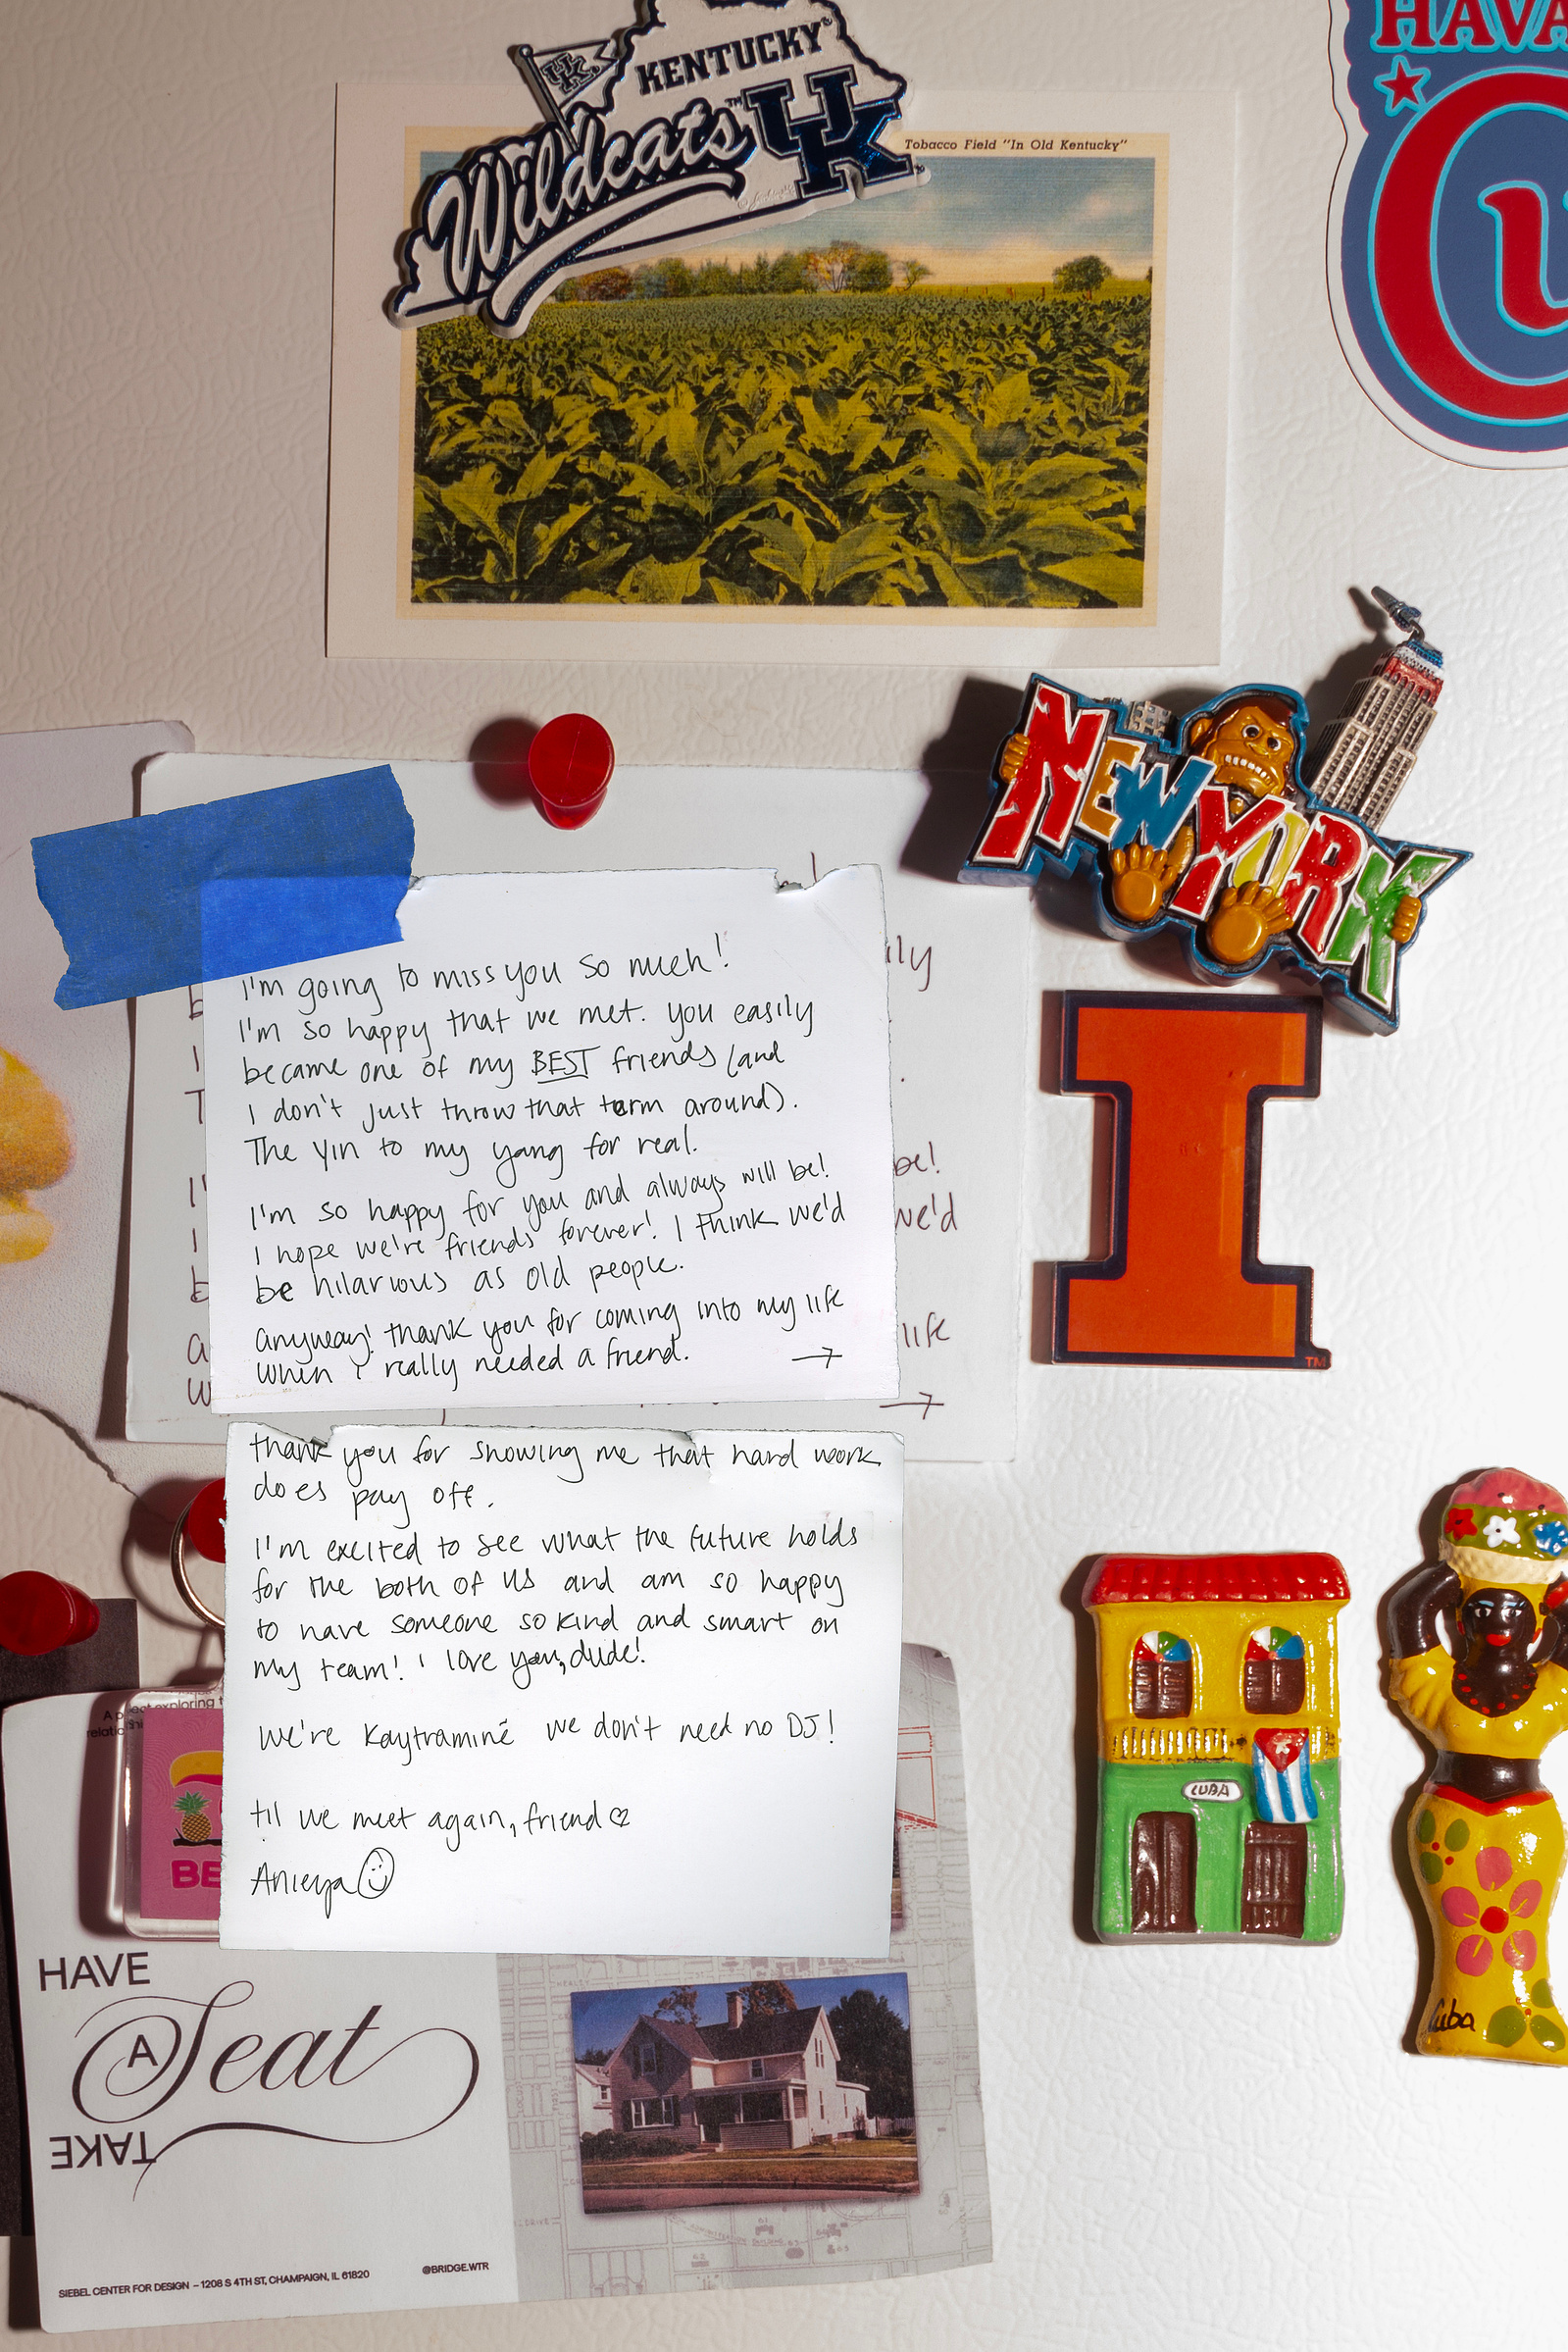 KENTUCKY
UK
Wildcats™ UK
Tobacco Field "In Old Kentucky"
HAVA
NEW YORK
ily
be!
we'd
life
→
I'm going to miss you so much!
I'm so happy that we met. you easily
became one of my BEST friends (and
I don't just throw that term around).
The Yin to my yang for real.
I'm so happy for you and always will be!
I hope we're friends forever! I think we'd
be hilarious as old people.
anyway! thank you for coming into my life
when I really needed a friend. →
thank you for showing me that hard work
does pay off.
I'm excited to see what the future holds
for the both of us and am so happy
to have someone so kind and smart on
my team! I love you, dude!
We're Kaytraminé we don't need no DJ!
til we meet again, friend ♡
Anieya ☺
I
TM
CUBA
Cuba
exploring
BE
HAVE
A Seat
TAKE
SIEBEL CENTER FOR DESIGN – 1208 S 4TH ST, CHAMPAIGN, IL 61820
@BRIDGE.WTR